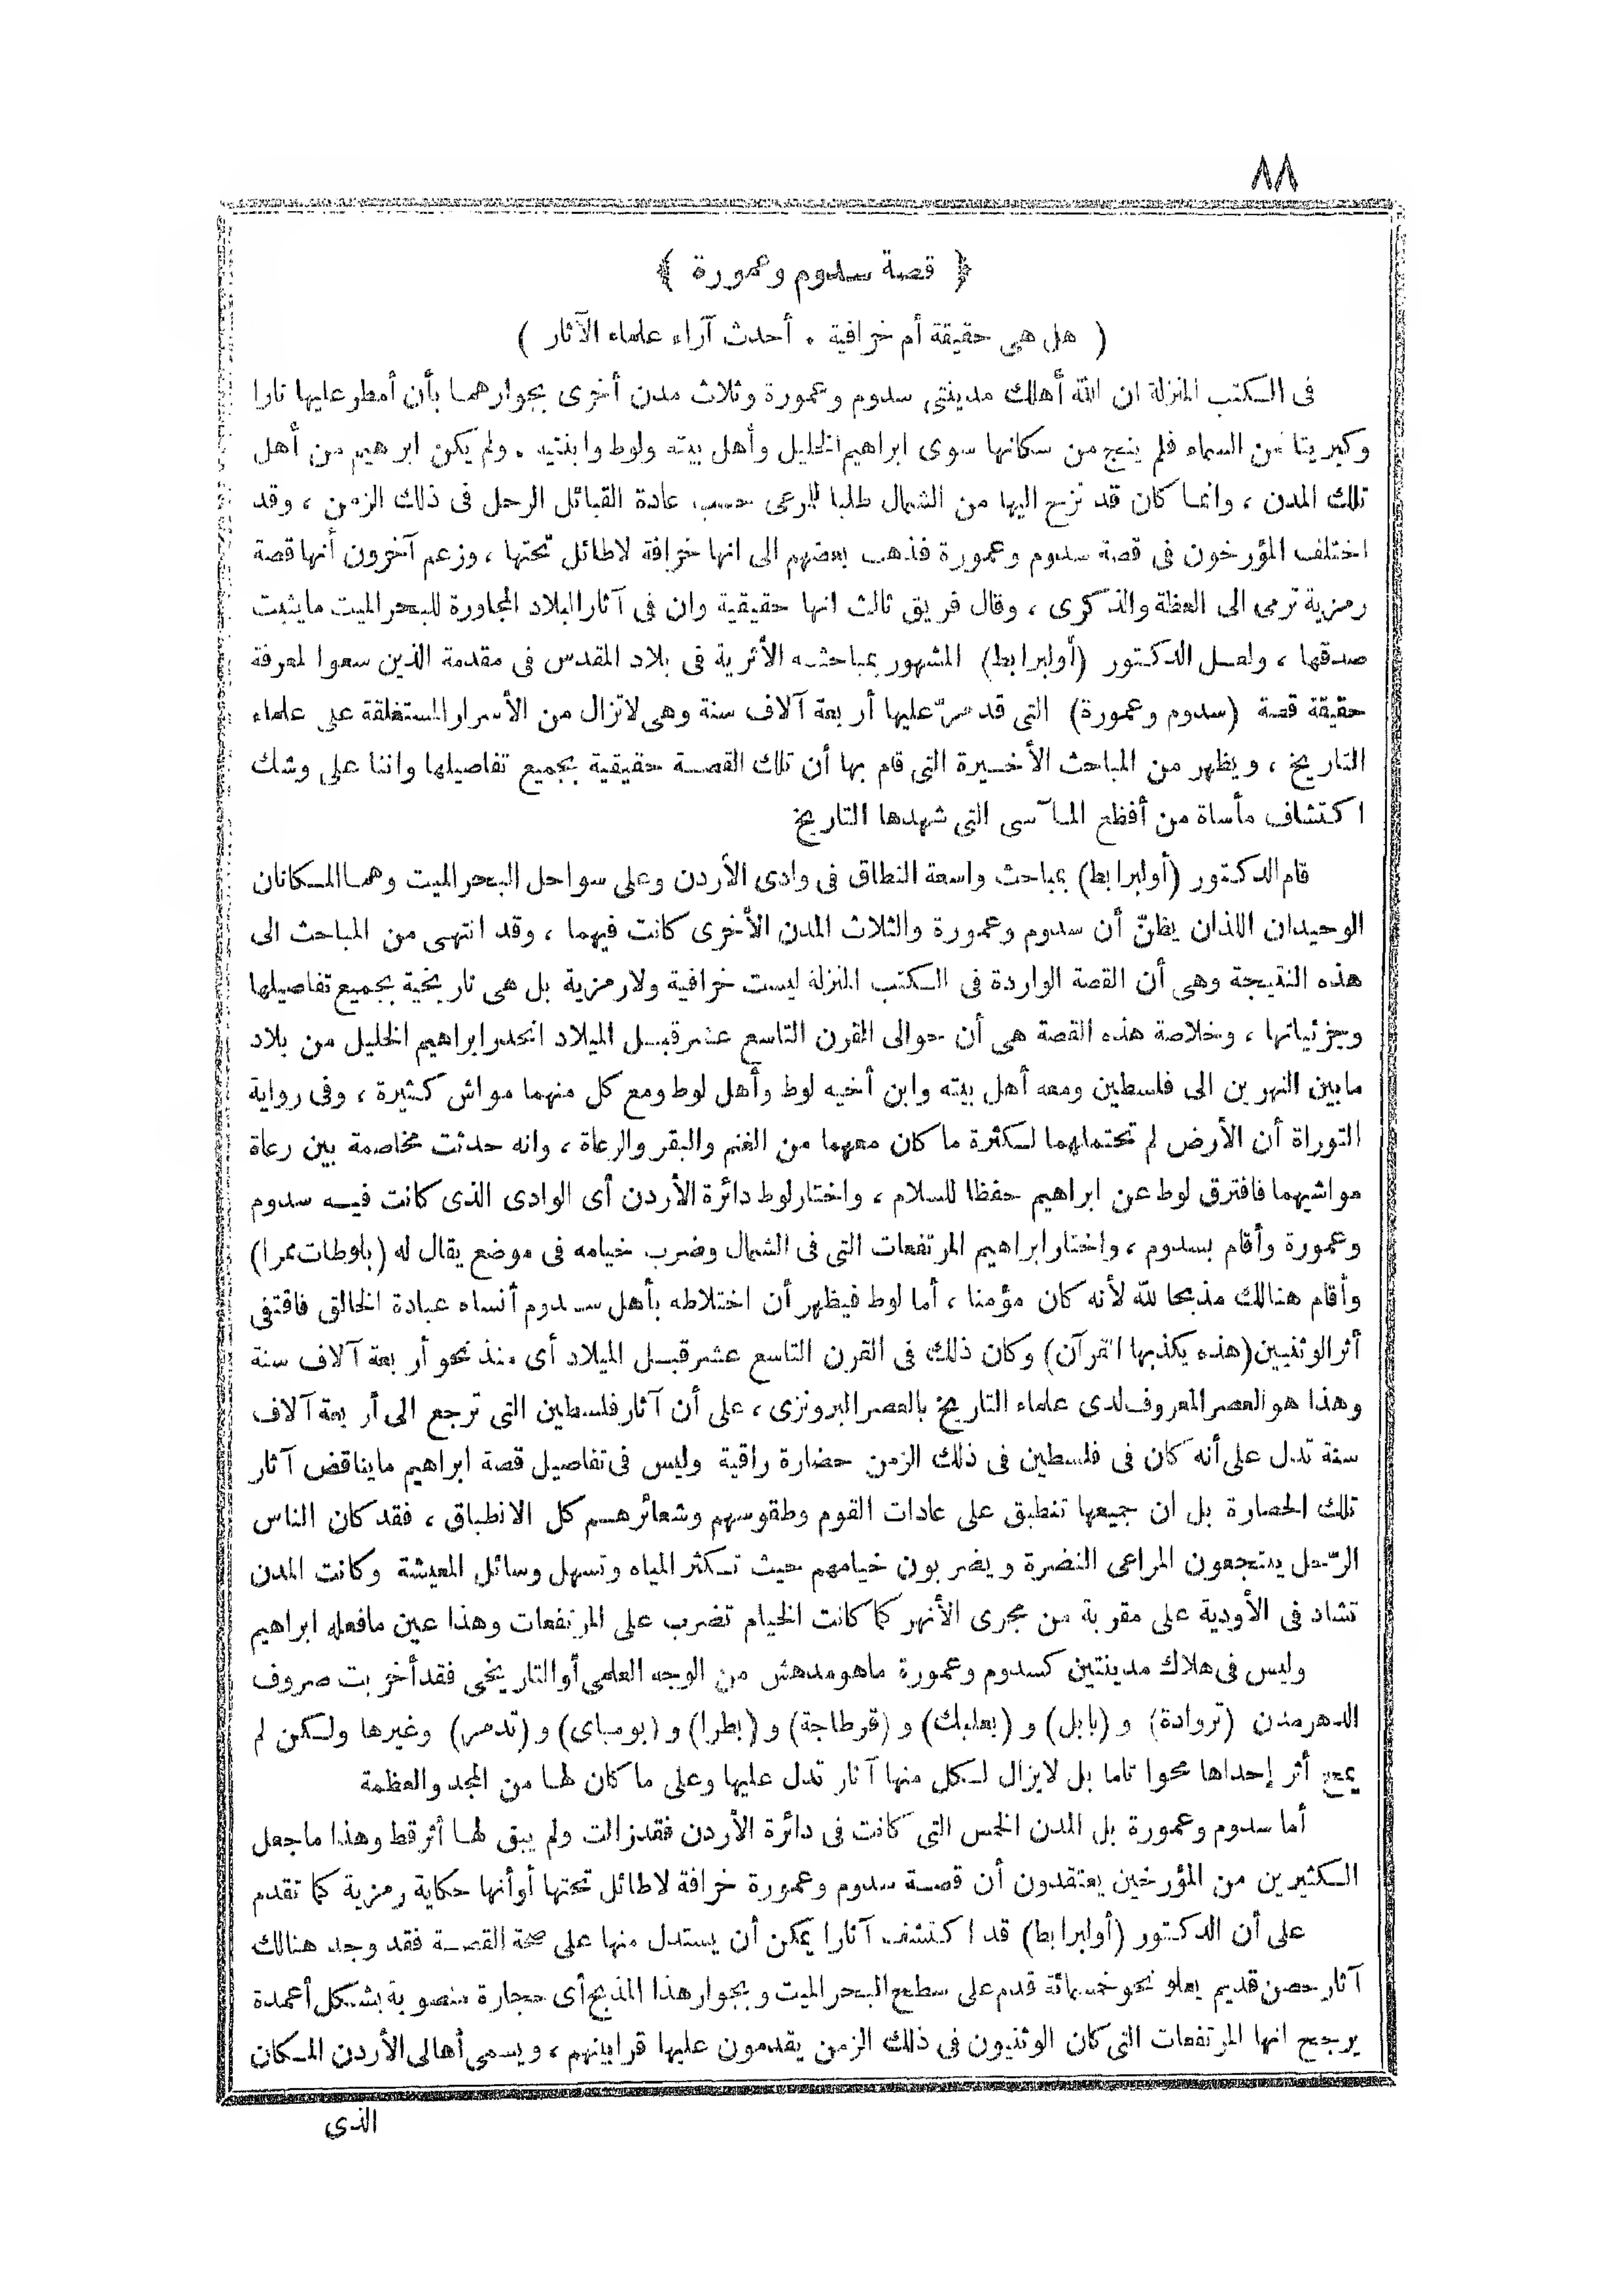 ٨٨
﴿ قصة سدوم وعمورة ﴾
( هل هى حقيقة أم خرافية . أحدث آراء علماء الآثار )
فى الكتب المنزلة ان الله أهلك مدينتى سدوم وعمورة وثلاث مدن أخرى بجوارهما بأن أمطر عليها نارا
وكبريتا من السماء فلم ينج من سكانها سوى ابراهيم الخليل وأهل بيته ولوط وابنتيه . ولم يكن ابرهيم من أهل
تلك المدن ، وانما كان قد نزح اليها من الشمال طلبا للرعى حسب عادة القبائل الرحل فى ذلك الزمن ، وقد
اختلف المؤرخون فى قصة سدوم وعمورة فذهب بعضهم الى انها خرافة لاطائل تحتها ، وزعم آخرون أنها قصة
رمزية ترمى الى العظة والذكرى ، وقال فريق ثالث انها حقيقية وان فى آثار البلاد المجاورة للبحر الميت مايثبت
صدقها ، ولعل الدكتور (أولبرابط) المشهور بمباحثه الأثرية فى بلاد المقدس فى مقدمة الذين سعوا لمعرفة
حقيقة قصة (سدوم وعمورة) التى قد مرّ عليها أربعة آلاف سنة وهى لاتزال من الأسرار المستغلقة على علماء
التاريخ ، ويظهر من المباحث الأخيرة التى قام بها أن تلك القصة حقيقية بجميع تفاصيلها واننا على وشك
اكتشاف مأساة من أفظع المآسى التى شهدها التاريخ
قام الدكتور (أولبرابط) بمباحث واسعة النطاق فى وادى الأردن وعلى سواحل البحر الميت وهما المكانان
الوحيدان اللذان يظنّ أن سدوم وعمورة والثلاث المدن الأخرى كانت فيهما ، وقد انتهى من المباحث الى
هذه النتيجة وهى أن القصة الواردة فى الكتب المنزلة ليست خرافية ولا رمزية بل هى تاريخية بجميع تفاصيلها
وجزئياتها ، وخلاصة هذه القصة هى أن حوالى القرن التاسع عشر قبل الميلاد انحدر ابراهيم الخليل من بلاد
مابين النهرين الى فلسطين ومعه أهل بيته وابن أخيه لوط وأهل لوط ومع كل منهما مواش كثيرة ، وفى رواية
التوراة أن الأرض لم تحتملهما لكثرة ما كان معهما من الغنم والبقر والرعاة ، وانه حدثت مخاصمة بين رعاة
مواشيهما فافترق لوط عن ابراهيم حفظا للسلام ، واختار لوط دائرة الأردن أى الوادى الذى كانت فيه سدوم
وعمورة وأقام بسدوم ، واختار ابراهيم المرتفعات التى فى الشمال وضرب خيامه فى موضع يقال له (بلوطات ممرا)
وأقام هنالك مذبحا لله لأنه كان مؤمنا ، أما لوط فيظهر أن اختلاطه بأهل سدوم أنساه عبادة الخالق فاقتفى
أثر الوثنيين (هذه يكذبها القرآن) وكان ذلك فى القرن التاسع عشر قبل الميلاد أى منذ نحو أربعة آلاف سنة
وهذا هو العصر المعروف لدى علماء التاريخ بالعصر البرونزى ، على أن آثار فلسطين التى ترجع الى أربعة آلاف
سنة تدل على أنه كان فى فلسطين فى ذلك الزمن حضارة راقية وليس فى تفاصيل قصة ابراهيم مايناقض آثار
تلك الحضارة بل ان جميعها تنطبق على عادات القوم وطقوسهم وشعائرهم كل الانطباق ، فقد كان الناس
الرّحل ينتجعون المراعى النضرة ويضربون خيامهم حيث تكثر المياه وتسهل وسائل المعيشة وكانت المدن
تشاد فى الأودية على مقربة من مجرى الأنهر كما كانت الخيام تضرب على المرتفعات وهذا عين مافعله ابراهيم
وليس فى هلاك مدينتين كسدوم وعمورة ماهومدهش من الوجه العلمى أوالتاريخى فقد أخربت صروف
الدهر مدن (تروادة) و (بابل) و (بعلبك) و (قرطاجة) و (بطرا) و (بومباى) و (تدمر) وغيرها ولكن لم
يمح أثر إحداها محوا تاما بل لايزال لكل منها آثار تدل عليها وعلى ما كان لها من المجد والعظمة
أما سدوم وعمورة بل المدن الخمس التى كانت فى دائرة الأردن فقد زالت ولم يبق لها أثر قط وهذا ماجعل
الكثيرين من المؤرخين يعتقدون أن قصة سدوم وعمورة خرافة لاطائل تحتها أوأنها حكاية رمزية كما تقدم
على أن الدكتور (أولبرابط) قد اكتشف آثارا يمكن أن يستدل منها على صحة القصة فقد وجد هنالك
آثار حصن قديم يعلو نحو خمسمائة قدم على سطح البحر الميت وبجوار هذا المذبح أى حجارة منصوبة بشكل أعمدة
يرجح انها المرتفعات التى كان الوثنيون فى ذلك الزمن يقدمون عليها قرابينهم ، ويسمى أهالى الأردن المكان
الذى